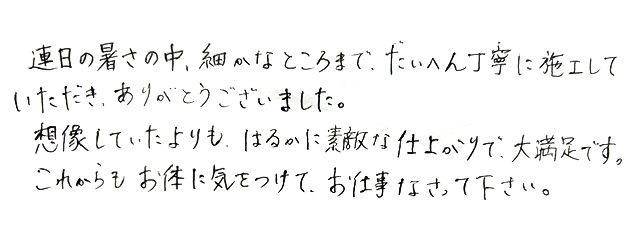 連日の暑さの中、細かなところまで、たいへん丁寧に施工して
いただき、ありがとうございました。
想像していたよりも、はるかに素敵な仕上がりで、大満足です。
これからもお体に気をつけて、お仕事なさって下さい。